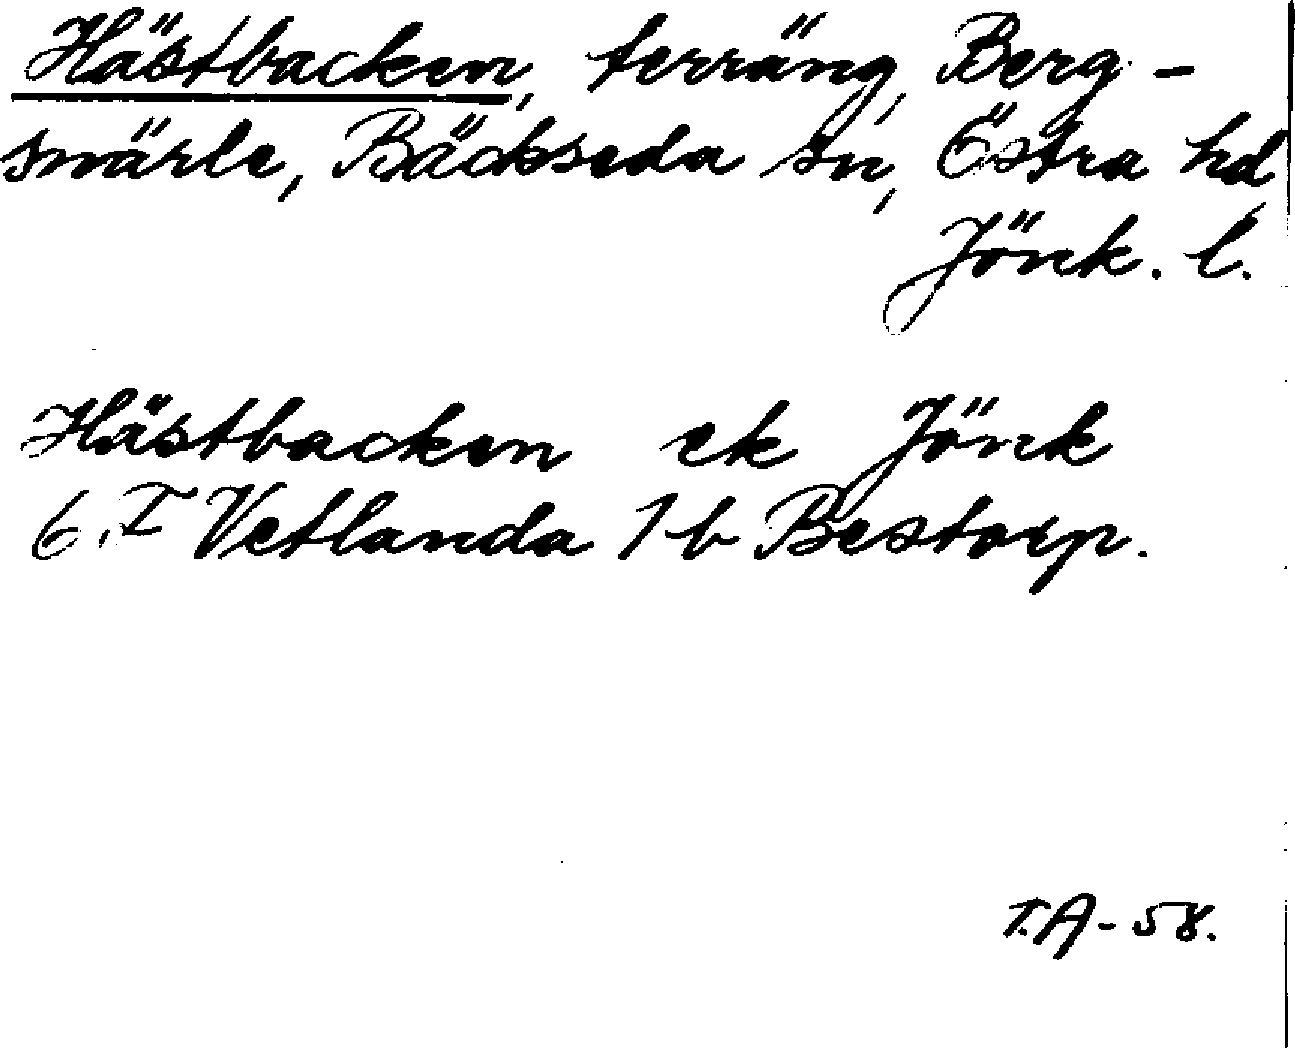 Hästbacken, terräng, Berg-
smärle, Bäckseda sn, Östra hd
Jönk. l.
Hästbacken ek Jönk
6. I Vetlanda 1 b Bestorp.
T.A-58.